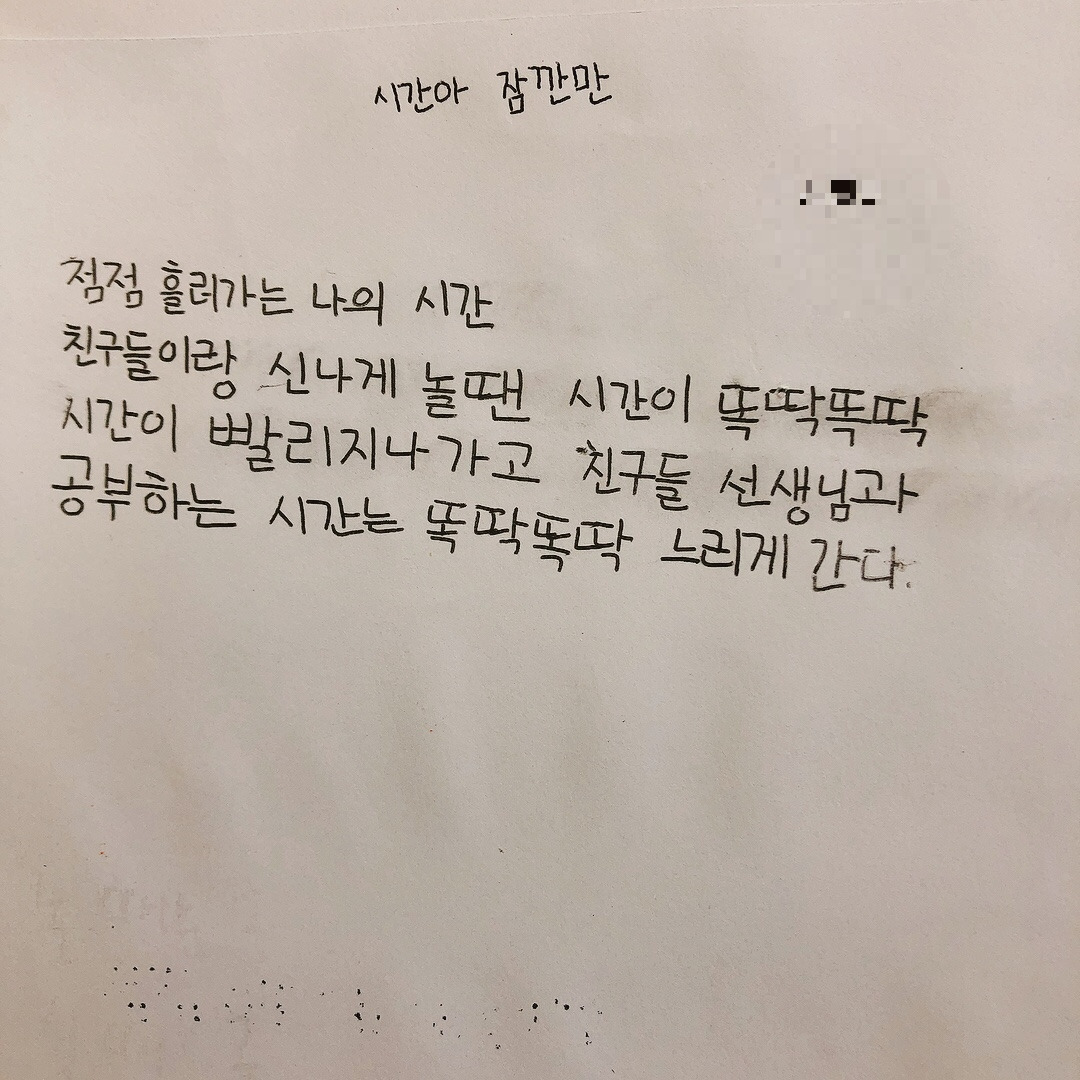 시간아 잠깐만
점점 흘러가는 나의 시간
친구들이랑 신나게 놀땐 시간이 똑딱똑딱
시간이 빨리지나가고 친구들 선생님과
공부하는 시간는 똑딱똑딱 느리게 간다.